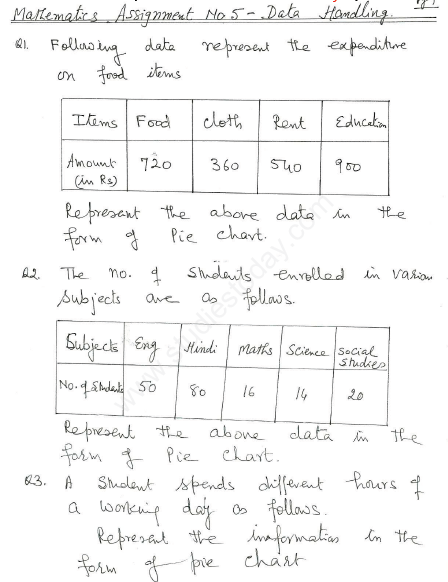 Mathematics Assignment No 5 - Data Handling.
Q1. Following data represent the expenditure
on food items
Items Food Cloth Rent Education
Amount (in Rs) 720 360 540 900
Represent the above data in the
form of Pie chart.
Q2. The no. of Students enrolled in various
Subjects are as follows.
Subjects Eng Hindi Maths Science Social Studies
No. of Students 50 80 16 14 20
Represent the above data in the
form of Pie chart.
Q3. A Student spends different hours of
a working day as follows.
Represent the information in the
form of pie chart
www.studiestoday.com